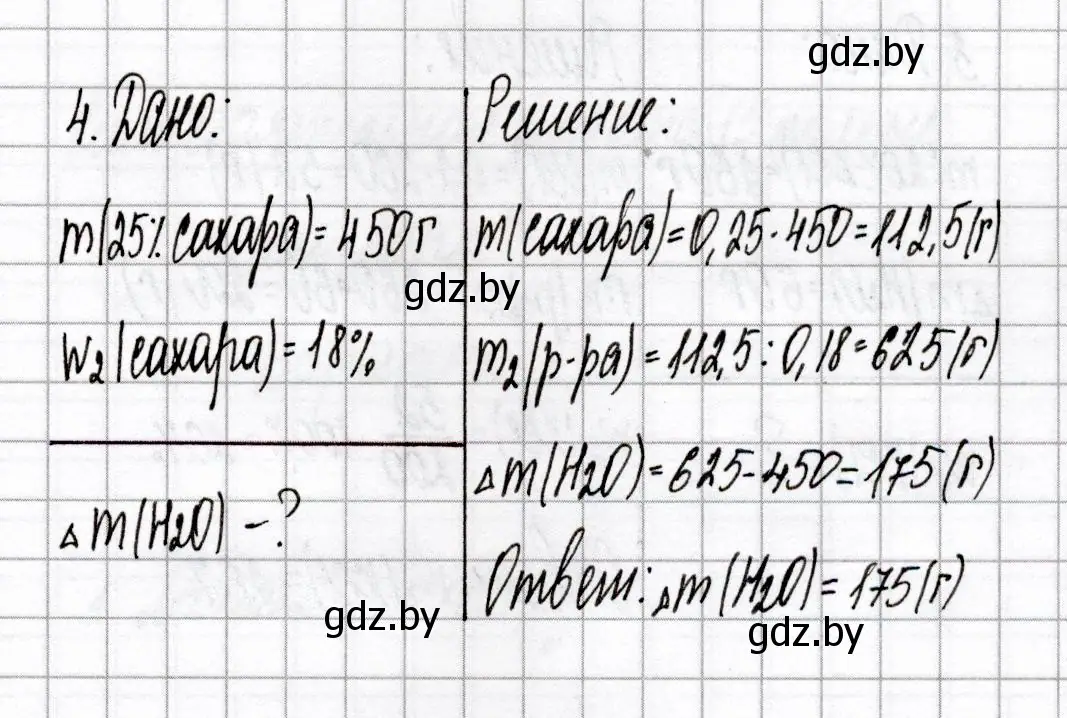 gdz.by
4. Дано:
m(25% сахара)=450г
gdz.by
w₂(сахара)=18%
△m(H2O) -?
gdz.by
Решение:
m(сахара)=0,25·450=112,5(г)
m₂(р-ра)=112,5:0,18=625(г)
△m(H2O)=625-450=175(г)
Ответ: △m(H2O)=175(г)
gdz.by